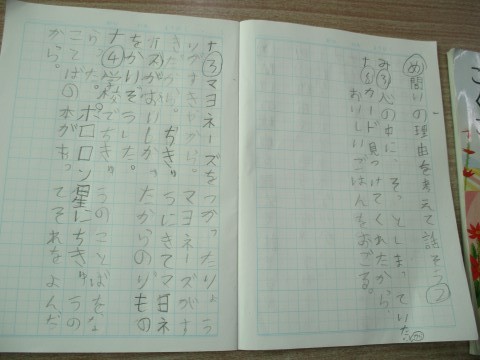 め 問いの理由を考えて話そう②
み③心の中に、そっとしまっていた。
ナ①カード見つけてくれたから、
おいしいごはんをおごる。
ナ③マヨネーズをつかったりょう
りがすきだから。マヨネーズがす
きだから。ちきゅうにきてマヨネ
ーズがおいしかったからのりもの
をかいぞうした。
ナ④学校でちきゅうのことばをな
らった。ポロロン星にちきゅうの
ことばの本があってそれをよんだ
から。